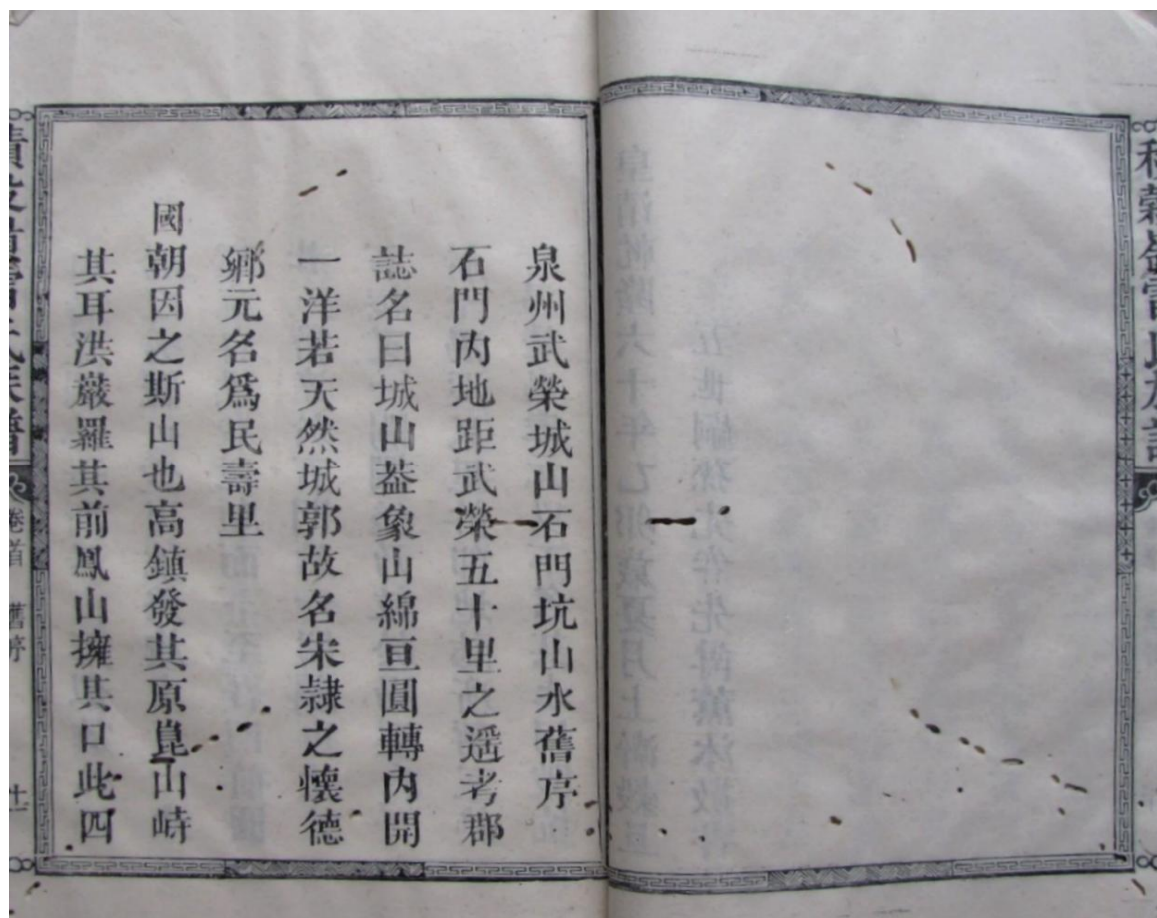 泉州武榮城山石門坑山水舊序
石門內地距武榮五十里之遥考郡
誌名曰城山葢象山綿亘圓轉內開
一洋若天然城郭故名宋隸之懷德
鄉元名爲民壽里
國朝因之斯山也高鎮發其原崑山峙
其耳洪巖羅其前鳳山擁其口此四
卷首 舊序